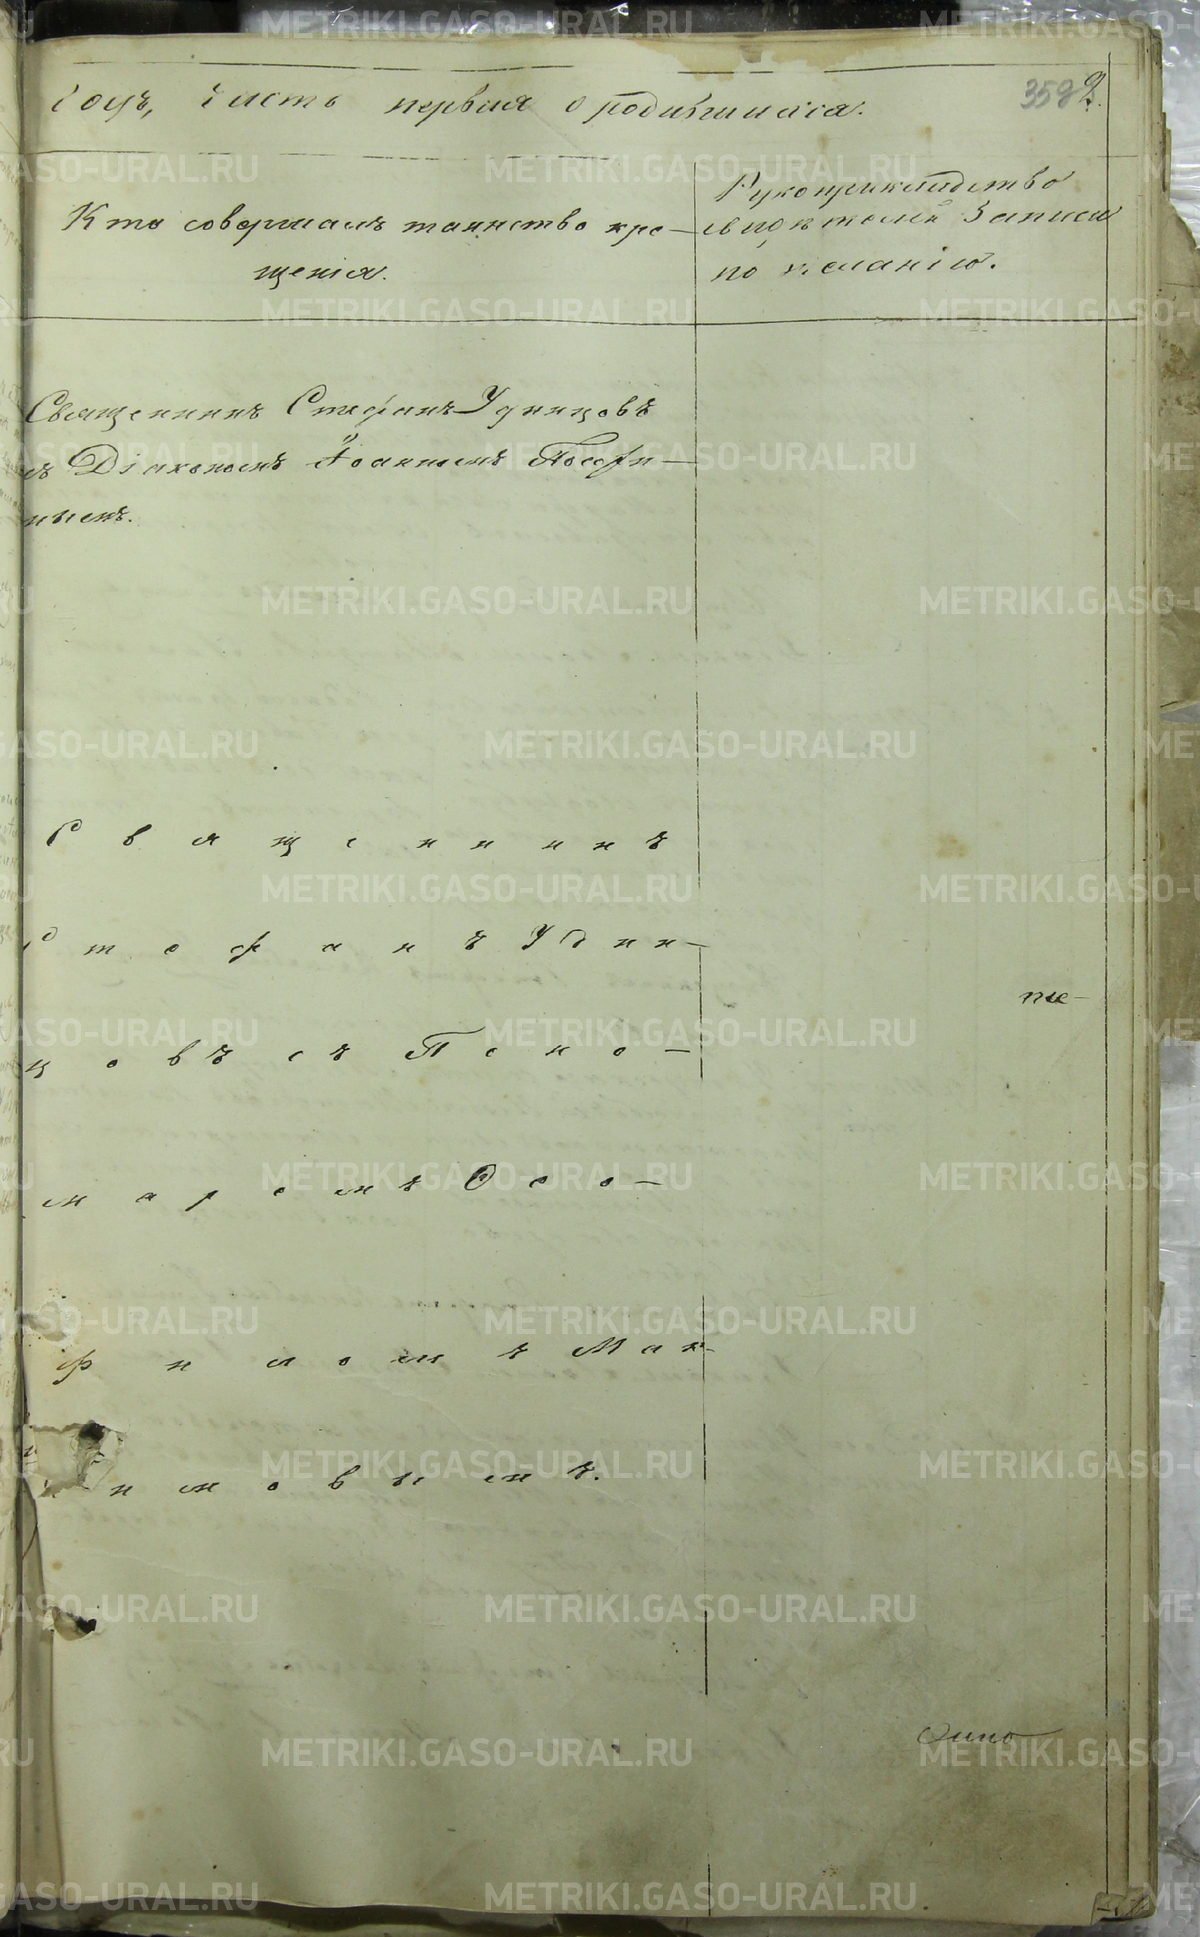 годъ, Часть первая о родившихся.
358 2.
Кто совершалъ таинство кре-
щенія.
Рукоприкладство
свидѣтелей записи
по желанію.
Священникъ Стефанъ Удинцовъ
съ Діакономъ Іоанномъ
нымъ.
Священникъ
Стефанъ Удин-
цовъ съ Поно-
маремъ Ѳео-
филомъ Мак-
имовымъ.
METRIKI.GASO-URAL.RU